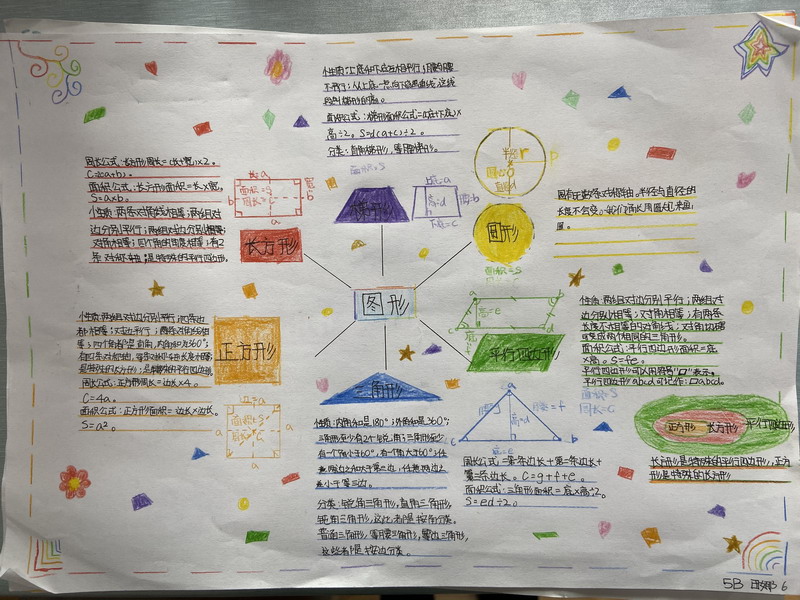 性质:上底和下底互相平行;
不平行;从上底一点向下底画垂线,这线
面积公式:梯形面积公式=(上底+下底)×
高÷2。S=d(a+c)÷2。
分类:直角梯形,等腰梯形。
面积=S
梯形
上底=a
高=d
腰=b
下底=c
半径
直径d
圆形
面积=S
圆有无数条对称轴。半径与直径的
长度不会变。
圆。
周长公式:长方形周长=(长+宽)×2。
面积公式:长方形面积=长×宽。
S=a×b。
性质:两条对角线相等;两组对
边分别平行;两组对边分别相等;
对角相等;四个角的度数相等;有2
条对称轴;是特殊的平行四边形。
长a
宽
b
面积=S
周长=C
b
a
长方形
图形
性质:两组对边分别平行;四条边
都相等;对边平行;两条对角线相
等;四个角都是直角,内角和为360°;
有四条对称轴,
是特殊的长方形;是特殊的平行四边形。
周长公式:正方形周长=边长×4。
C=4a。
面积公式:正方形面积=边长×边长。
S=a²。
正方形
边=a
面积=S
周长=C
a
a
a
高=e
底=f
a
b
c
d
平行四边形
面积=S
周长=C
性质:两组对边分别平行;两组对
边分别相等;对角相等;有两条
长度不相等的对角线;对角线把
变成两个相同的三角形。
面积公式:平行四边形面积=底
×高。S=fe。
平行四边形可以用符号“▱”表示。
平行四边形abcd可记作:▱abcd。
正方形
长方形
平行四边形
长方形是特殊的平行四边形,正方
形是特殊的长方形
三角形
性质:内角和是180°;外角和是360°;
三角形至少有2个锐角;三角形至少
有一个角小于60°,有一个角大于60°;任
意两边之和大于第三边,任意两边之
差小于第三边。
分类:锐角三角形,直角三角形,
钝角三角形,这些都是按角分类。
普通三角形,等腰三角形,等边三角形,
这些都是按边分类。
a
腰=f
高=d
c
b
底=e
周长公式=第一条边长+第二条边长+
第三条边长。C=g+f+e。
面积公式:三角形面积=底×高÷2。
S=ed÷2。
5B
6